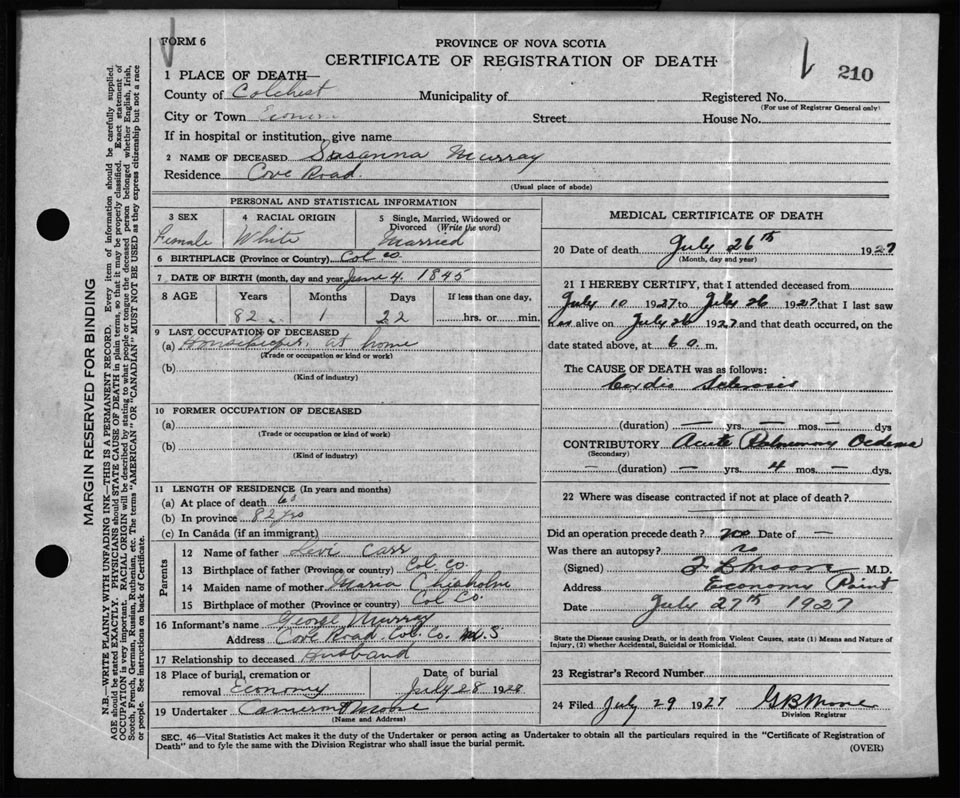 FORM 6
PROVINCE OF NOVA SCOTIA
CERTIFICATE OF REGISTRATION OF DEATH
210
1 PLACE OF DEATH—
County of Colchest Municipality of Registered No.
(For use of Registrar General only)
City or Town Street House No.
If in hospital or institution, give name
2 NAME OF DECEASED Susanna Murray
Residence Cove Road
(Usual place of abode)
PERSONAL AND STATISTICAL INFORMATION
3 SEX 4 RACIAL ORIGIN 5 Single, Married, Widowed or Divorced (Write the word)
Female White Married
6 BIRTHPLACE (Province or Country) Col Co.
7 DATE OF BIRTH (month, day and year) June 4. 1845
8 AGE Years Months Days If less than one day,
82 1 22 hrs. or min.
9 LAST OCCUPATION OF DECEASED
(a) Housekeeper at home
(Trade or occupation or kind or work)
(b)
(Kind of industry)
10 FORMER OCCUPATION OF DECEASED
(a)
(Trade or occupation or kind of work)
(b)
(Kind of industry)
11 LENGTH OF RESIDENCE (In years and months)
(a) At place of death 60
(b) In province 82 yrs
(c) In Canada (if an immigrant)
Parents
12 Name of father Levi Carr
13 Birthplace of father (Province or country) Col. Co.
14 Maiden name of mother Maria Chisholm
15 Birthplace of mother (Province or country) Col Co.
16 Informant's name George Murray
Address Cove Road, Col. Co. N.S
17 Relationship to deceased Husband
18 Place of burial, cremation or removal Economy Date of burial July 28 1928
19 Undertaker Cameron Moore
(Name and Address)
MEDICAL CERTIFICATE OF DEATH
20 Date of death July 26th 1927
(Month, day and year)
21 I HEREBY CERTIFY, that I attended deceased from
July 10 1927 to July 26 1927 that I last saw
alive on July 26 1927 and that death occurred, on the
date stated above, at 6 a. m.
The CAUSE OF DEATH was as follows:
Cardio Sclerosis
(duration) — yrs. — mos. — dys
CONTRIBUTORY Acute Pulmonary Oedema
(Secondary)
— (duration) — yrs. 4 mos. — dys.
22 Where was disease contracted if not at place of death?
Did an operation precede death? no Date of —
Was there an autopsy? no
(Signed) Moore M.D.
Address Economy Point
Date July 27th 1927
State the Disease causing Death, or in death from Violent Causes, state (1) Means and Nature of
Injury, (2) whether Accidental, Suicidal or Homicidal.
23 Registrar's Record Number
24 Filed July 29 1927 G B Moore
Division Registrar
SEC. 46—Vital Statistics Act makes it the duty of the Undertaker or person acting as Undertaker to obtain all the particulars required in the "Certificate of Registration of
Death" and to fyle the same with the Division Registrar who shall issue the burial permit.
(OVER)
MARGIN RESERVED FOR BINDING
N.B.—WRITE PLAINLY WITH UNFADING INK—THIS IS A PERMANENT RECORD. Every item of information should be carefully supplied.
AGE should be stated EXACTLY. PHYSICIANS should STATE CAUSE OF DEATH in plain terms, so that it may be properly classified. Exact statement of
OCCUPATION is very important. RACIAL ORIGIN will be described by stating to what people or tongue the deceased person belonged whether English, Irish,
Scotch, French, German, Russian, Ruthenian, etc. The terms "AMERICAN" OR "CANADIAN" MUST NOT BE USED as they express citizenship but not a race
or people. See instructions on back of Certificate.